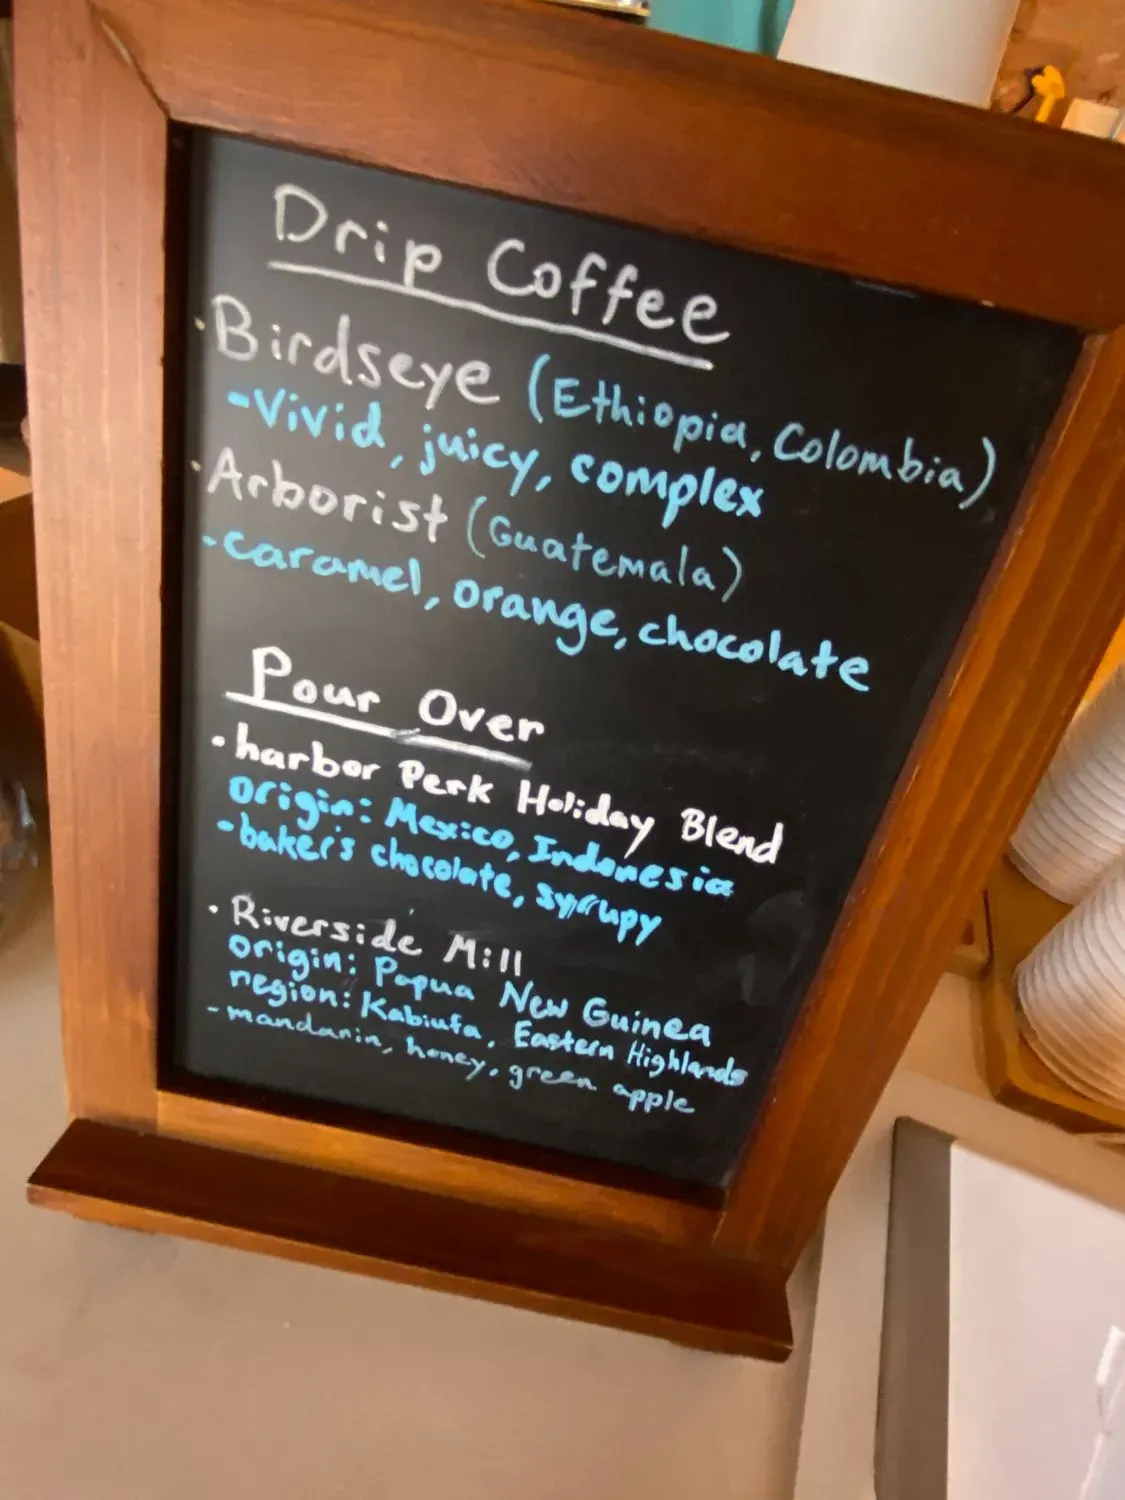 Drip Coffee
· Birdseye (Ethiopia, Colombia)
- Vivid, juicy, complex
· Arborist (Guatemala)
- caramel, orange, chocolate
Pour Over
· harbor Perk Holiday Blend
origin: Mexico, Indonesia
- baker's chocolate, syrupy
· Riverside Mill
origin: Papua New Guinea
region: Kabiufa, Eastern Highlands
- mandarin, honey, green apple